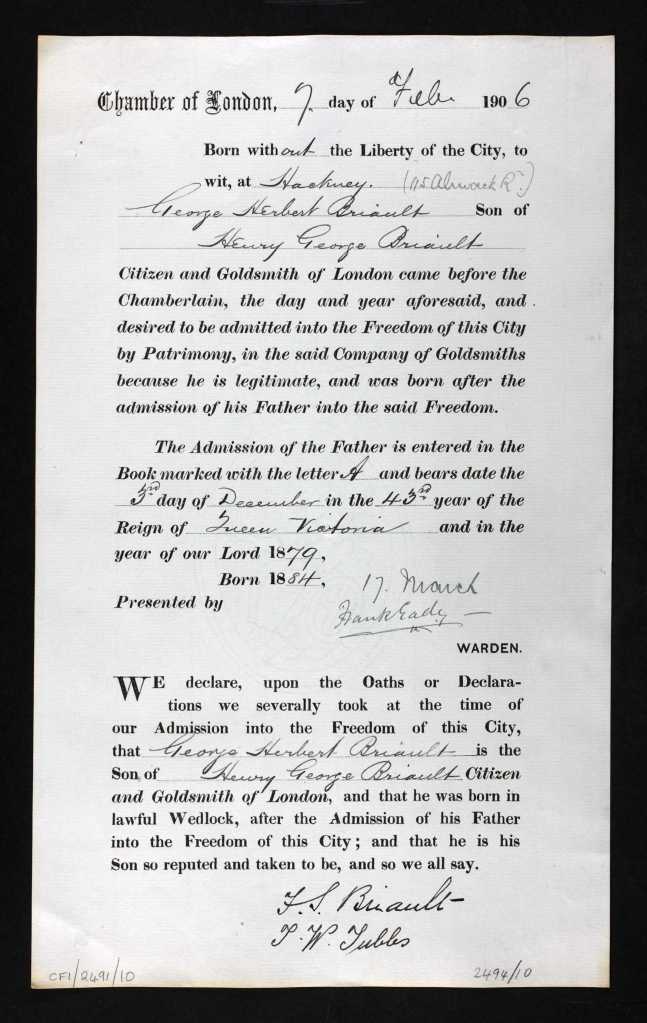 Chamber of London, 7. day of Feb. 1906
Born without the Liberty of the City, to
wit, at Hackney. (115 Alnwack Rd.)
George Herbert Briault Son of
Henry George Briault
Citizen and Goldsmith of London came before the
Chamberlain, the day and year aforesaid, and
desired to be admitted into the Freedom of this City
by Patrimony, in the said Company of Goldsmiths
because he is legitimate, and was born after the
admission of his Father into the said Freedom.
The Admission of the Father is entered in the
Book marked with the letter A and bears date the
3rd day of December in the 43rd year of the
Reign of Queen Victoria and in the
year of our Lord 1879,
Born 1884, 17. March
Presented by Frank Eady
WARDEN.
WE declare, upon the Oaths or Declara-
tions we severally took at the time of
our Admission into the Freedom of this City,
that George Herbert Briault is the
Son of Henry George Briault Citizen
and Goldsmith of London, and that he was born in
lawful Wedlock, after the Admission of his Father
into the Freedom of this City; and that he is his
Son so reputed and taken to be, and so we all say.
F. S. Briault
P. W. Tubbs
CF1/2491/10 2494/10